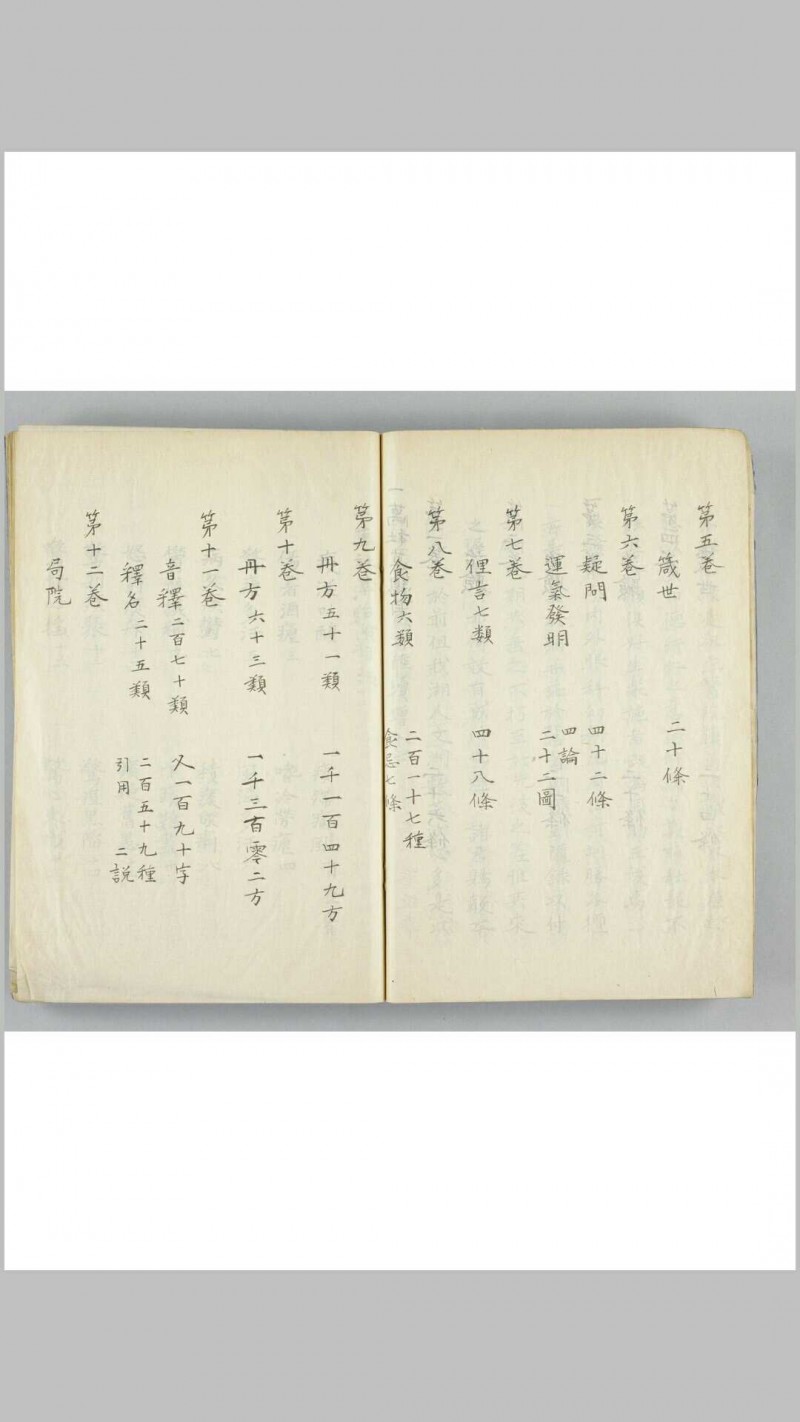 第五卷
箴世 二十條
第六卷
疑問 四十二條
運氣發明 四論
二十二圖
第七卷
俚言七類 四十八條
第八卷
食物六類 二百一十七種
食忌七條
第九卷
丹方五十一類 一千一百四十九方
第十卷
丹方六十三類 一千三百零二方
第十一卷
音釋二百七十類 又一百九十字
釋名二十五類 二百五十九種
引用 二説
第十二卷
局院